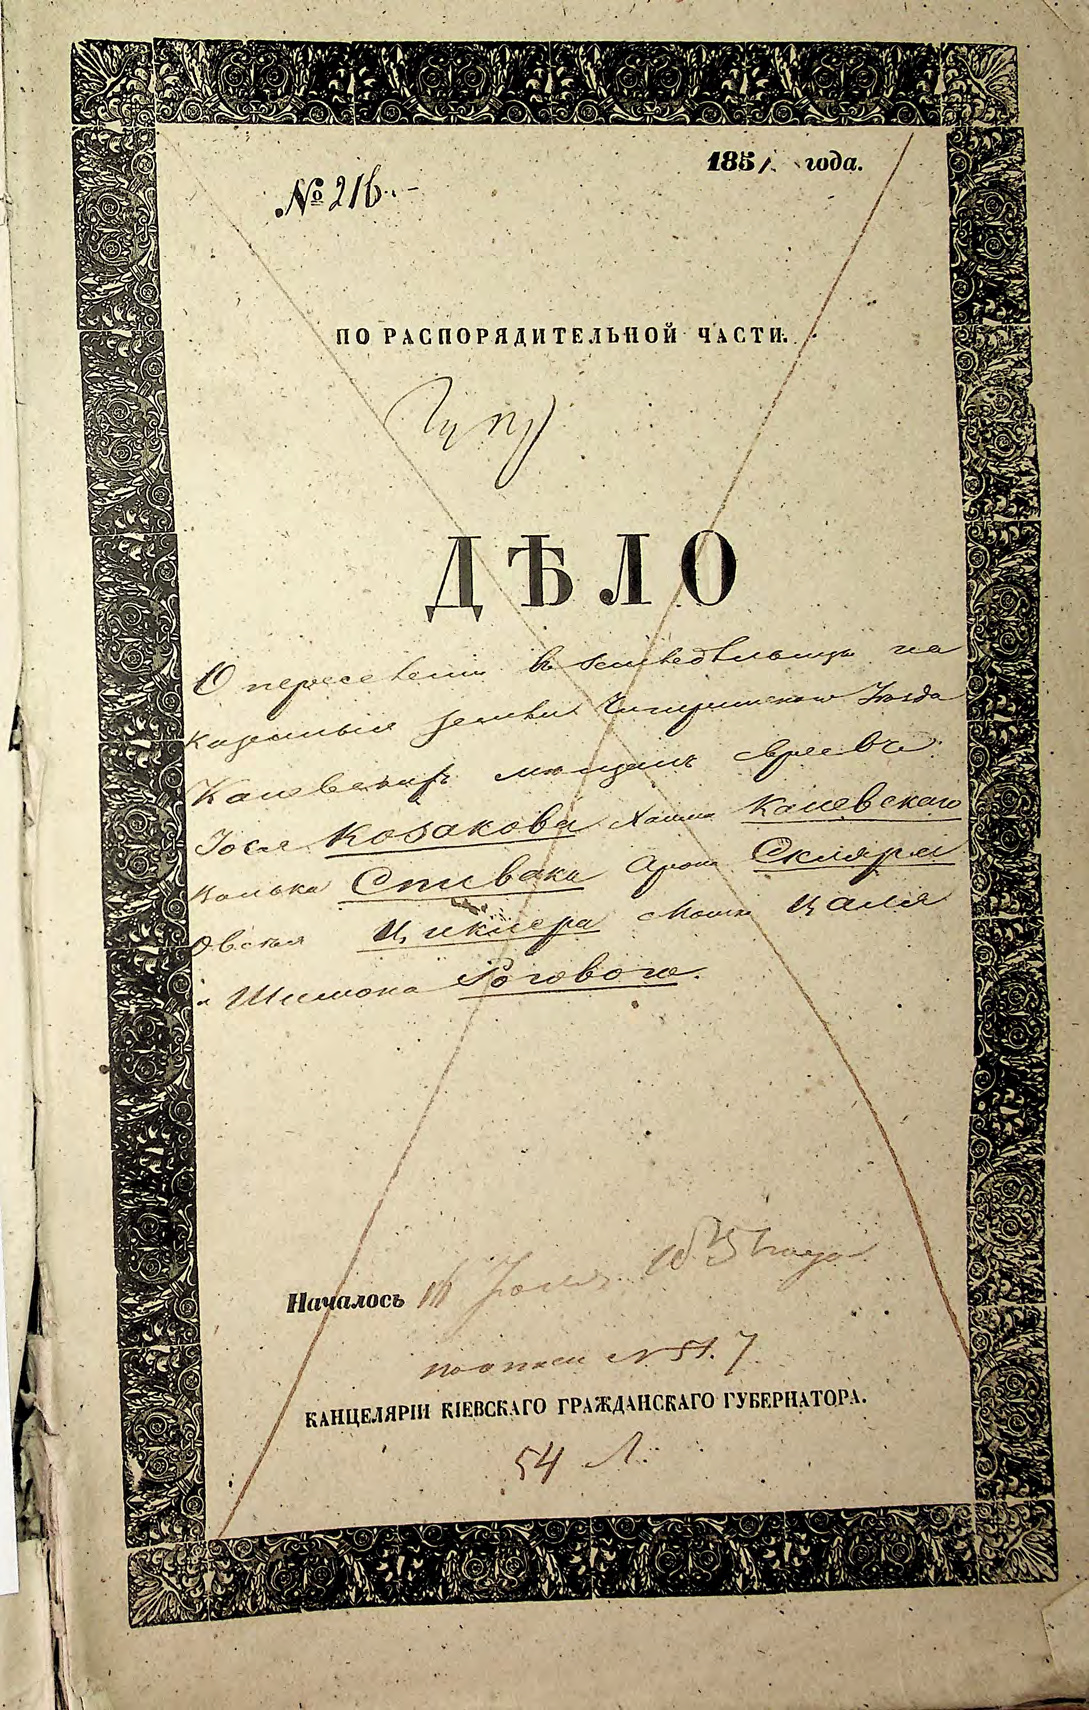 1851 года.
№ 216.
ПО РАСПОРЯДИТЕЛЬНОЙ ЧАСТИ.
ДѢЛО
О переселеніи въ земледѣльцы на
казенныя земли Чигиринскаго Уѣзда
Каневскихъ мѣщанъ евреевъ
Іося Козакова Хаима Каневскаго
Волька Спивака Арона Скляра
Овсея Циклера Мошка Цаля
и Шимона Рогового.
Началось 16 Іюля 1851 года
по описи № 51. 7
КАНЦЕЛЯРІИ КІЕВСКАГО ГРАЖДАНСКАГО ГУБЕРНАТОРА.
54 Л.